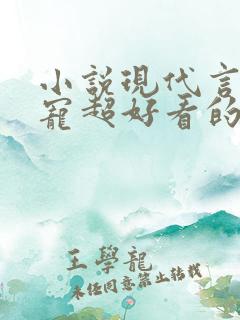 小説現代言
寵超好看的
王學龍
未经同意禁止转载